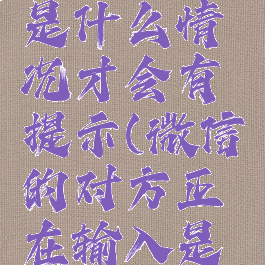 是什么情
况才会有
提示(微信
的对方正
在输入是